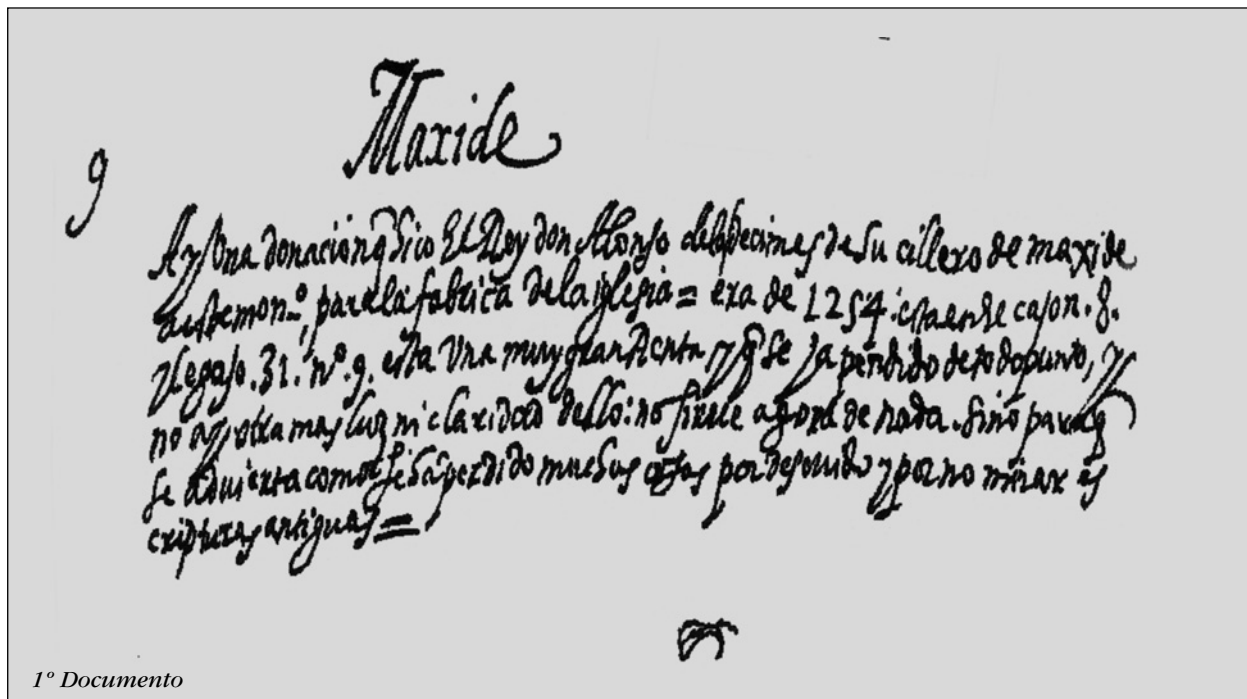 Maxide
9
Ay Una donacion q̃ hico El Rey don Alonso de los decimos de su cillero de maxide
a este mon.º, para la fabrica de la iglesia = era de 1254. esta en el cajon. 8.
y legajo. 31. nº. 9. esta Una muy gran Renta y q̃ se ha perdido de todo punto, y
no ay otra mas luz ni claridad dello: no sirue agora de nada. Sino para q̃
se aduierta como se ha perdido muchas cosas por descuido y por no mirar es
cripturas antiguas =
1º Documento